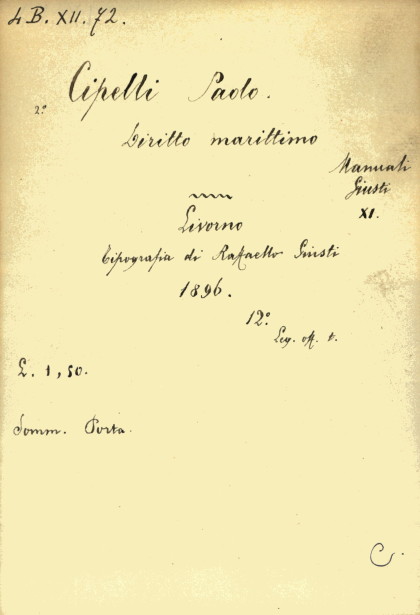 4 B. XII. 72.
Cipelli Paolo.
2°
Diritto marittimo
Manuali
Giusti
XI.
Livorno
Tipografia di Raffaello Giusti
1896.
12°
Leg. off. t.
L. 1,50.
Somm. Porta.
C.